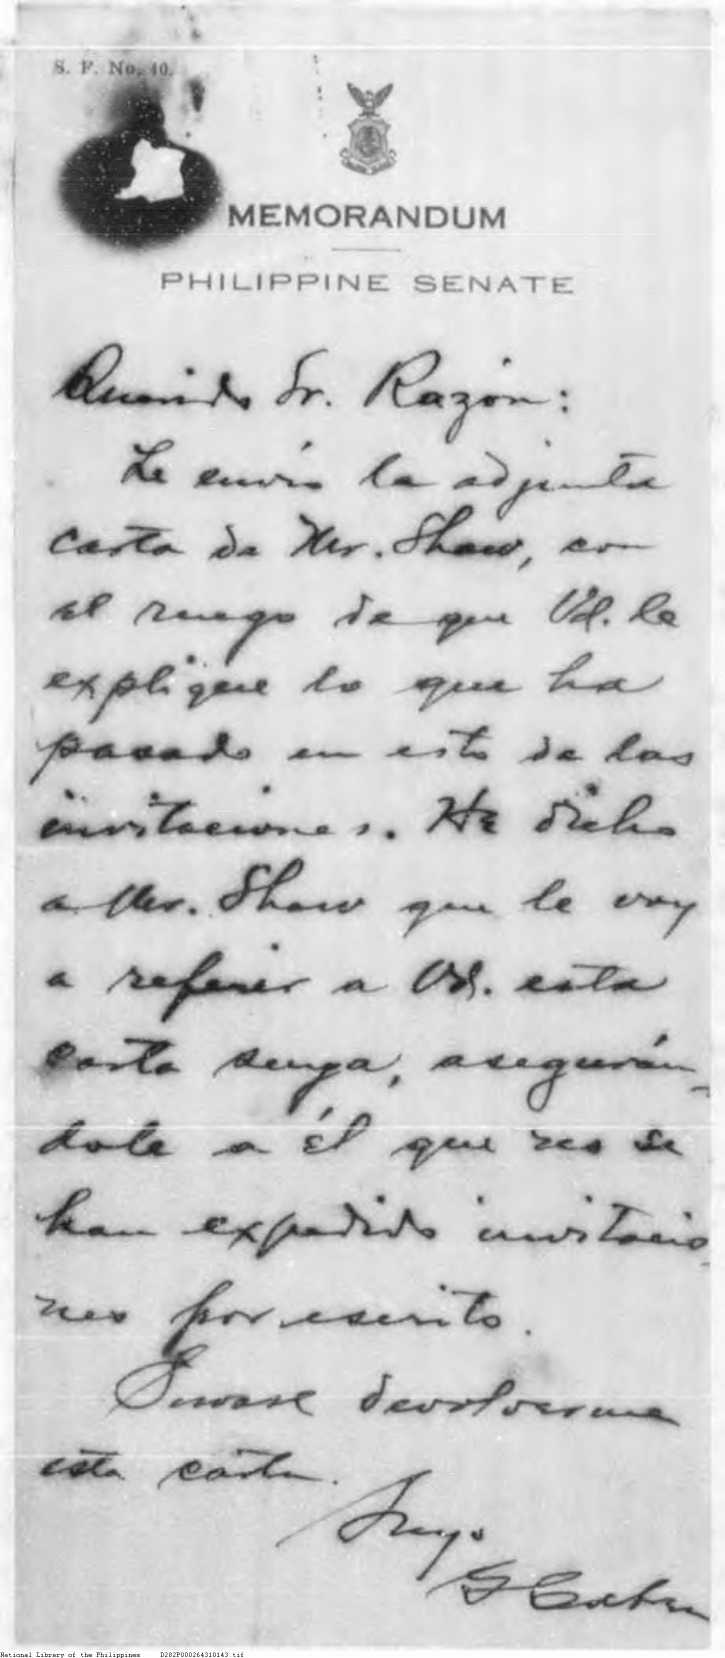 S. F. No. 40.
MEMORANDUM
PHILIPPINE SENATE
Querido Sr. Razón:
Le envío la adjunta
carta de Mr. Shaw, con
el ruego de que Vd. le
explique lo que ha
pasado en esto de las
invitaciones. He dicho
a Mr. Shaw que le voy
a referir a Vd. esta
carta suya, asegurán-
dole a él que no se
han expedido invitacio-
nes por escrito.
Sírvase devolverme
esta carta.
Suyo
National Library of the Philippines D282P000264310143.tif